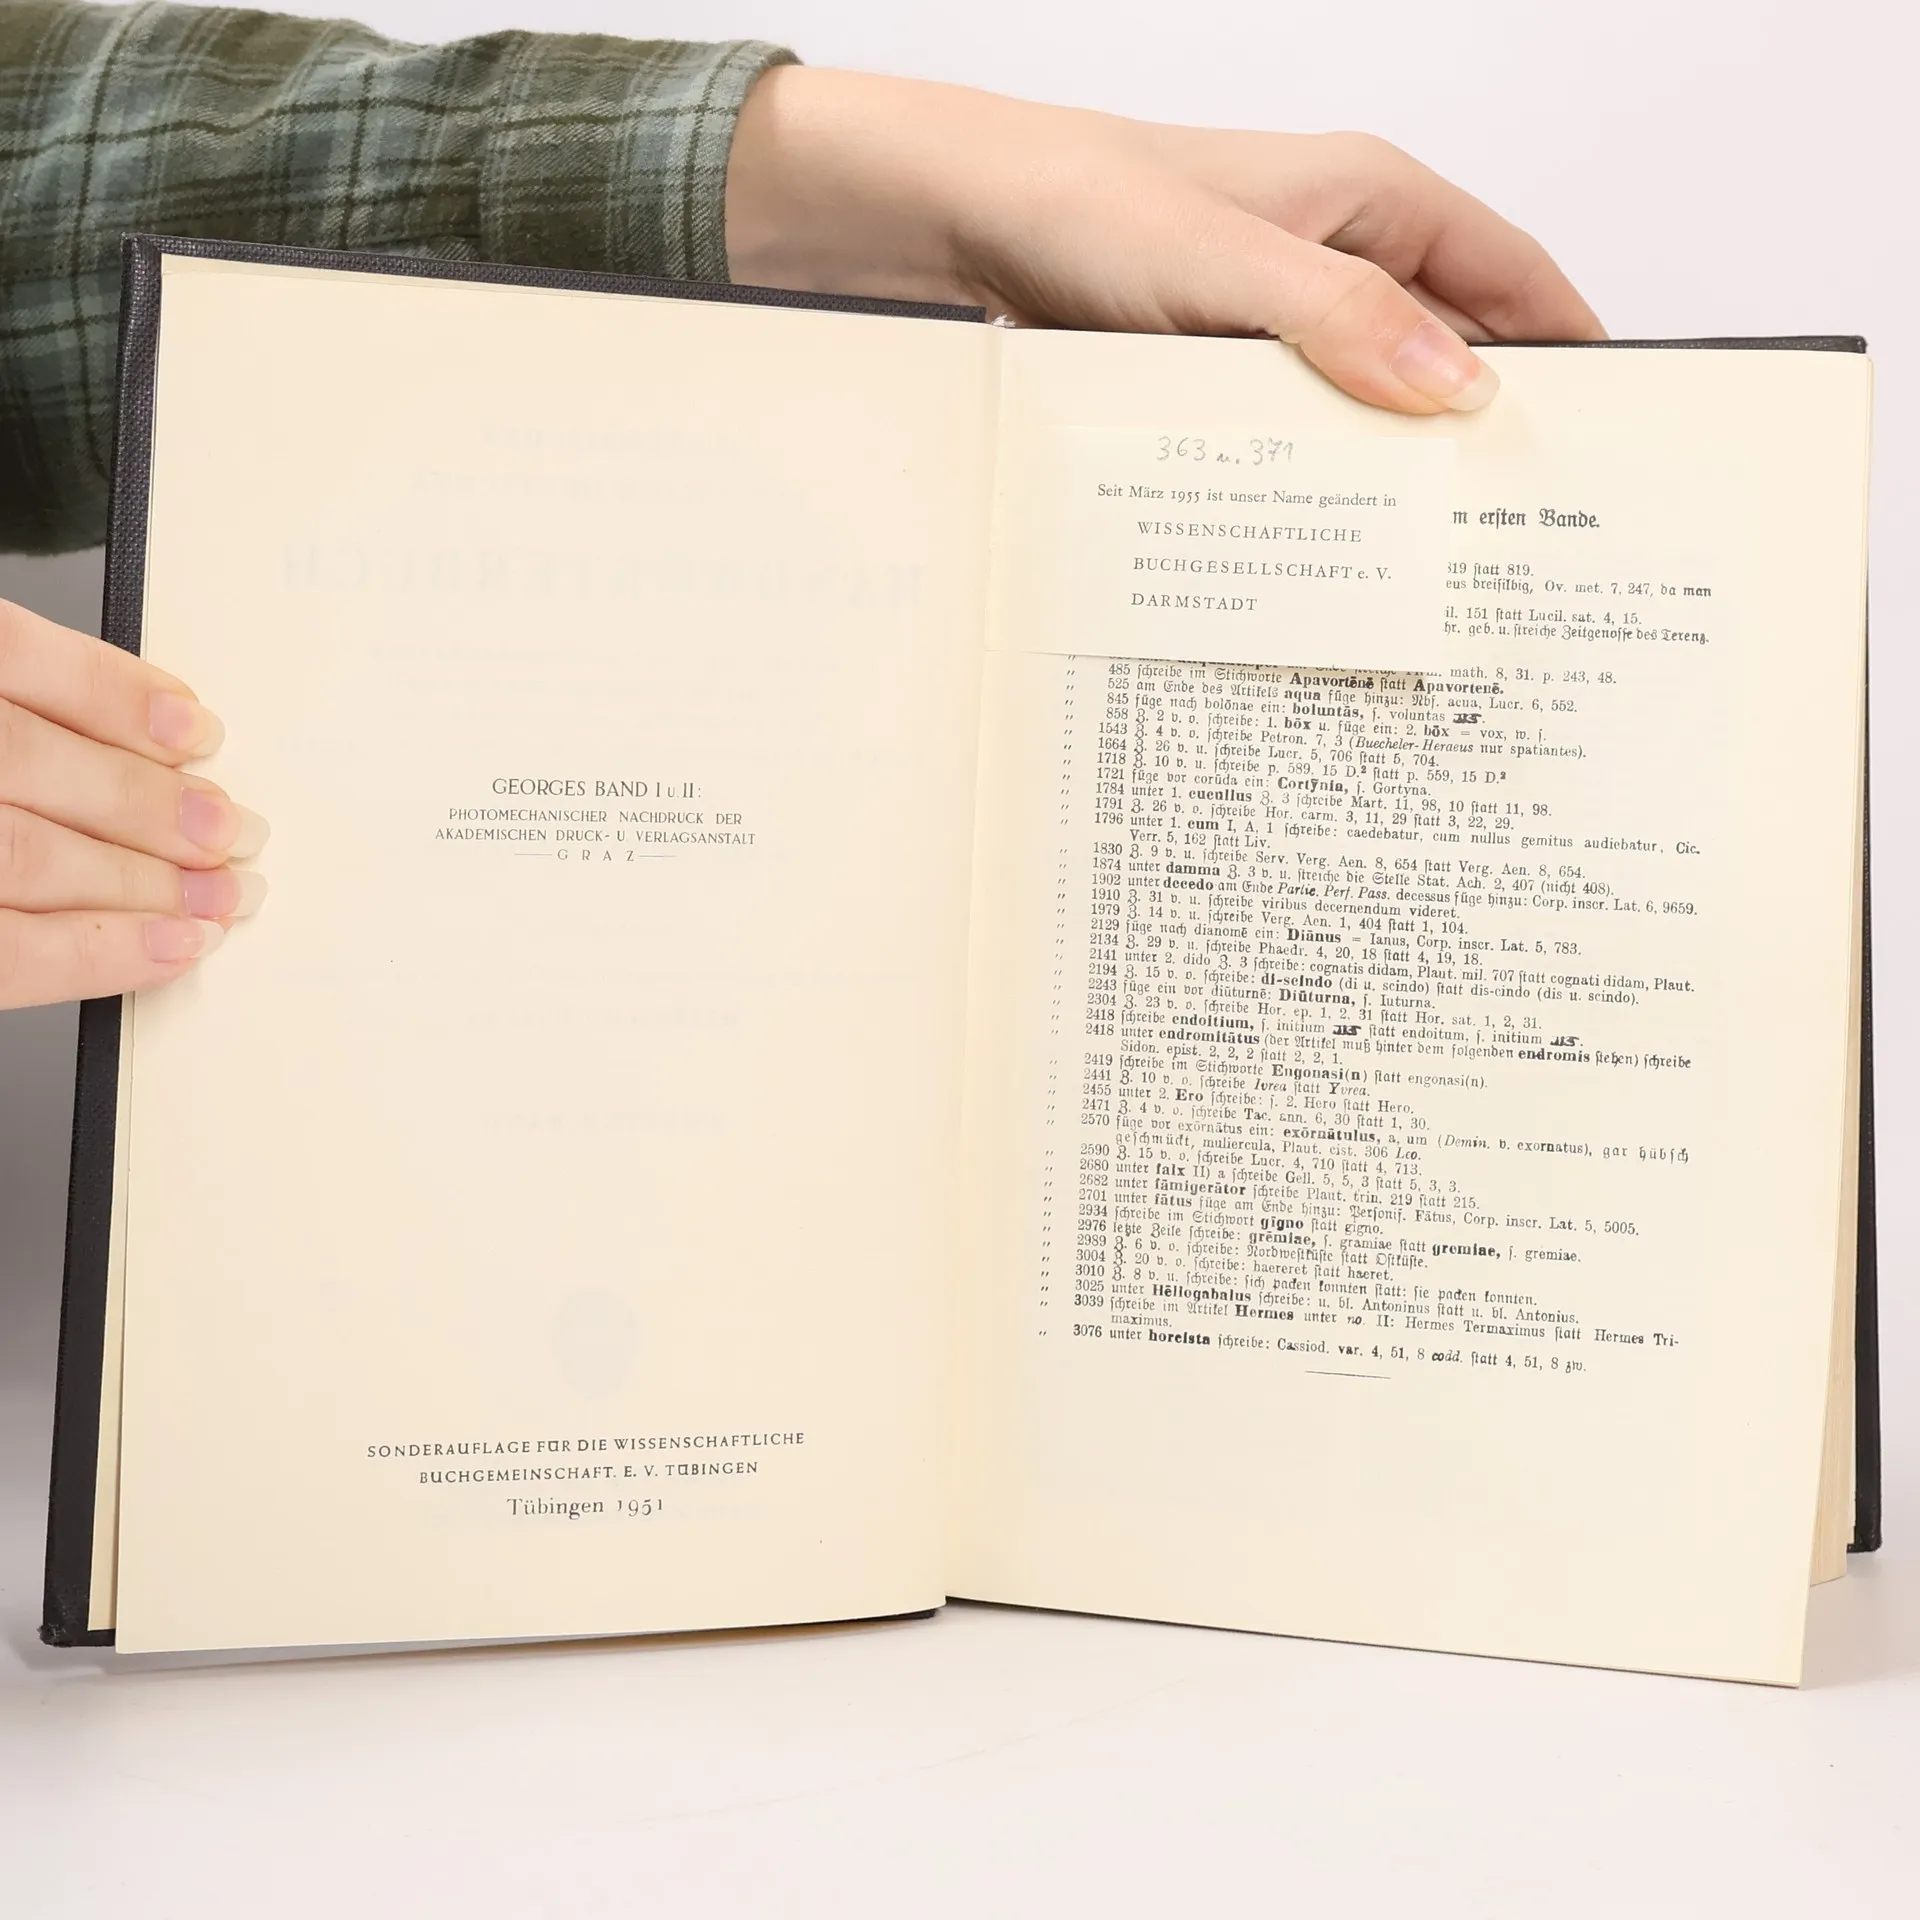 GEORGES BAND I U. II:
PHOTOMECHANISCHER NACHDRUCK DER
AKADEMISCHEN DRUCK- U. VERLAGSANSTALT
GRAZ
SONDERAUFLAGE FÜR DIE WISSENSCHAFTLICHE
BUCHGEMEINSCHAFT. E. V. TÜBINGEN
Tübingen 1951
363 u. 371
Seit März 1955 ist unser Name geändert in
WISSENSCHAFTLICHE
BUCHGESELLSCHAFT e. V.
DARMSTADT
m erſten Bande.
819 ſtatt 819.
eus dreiſilbig, Ov. met. 7, 247, da man
il. 151 ſtatt Lucil. sat. 4, 15.
hr. geb. u. ſtreiche Zeitgenoſſe des Terenz.
math. 8, 31. p. 243, 48.
„ 485 ſchreibe im Stichworte Apavortēnē ſtatt Apavortenē.
„ 525 am Ende des Artikels aqua füge hinzu: Nbf. acua, Lucr. 6, 552.
„ 845 füge nach bolōnae ein: boluntās, ſ. voluntas
„ 858 Z. 2 v. o. ſchreibe: 1. bōx u. füge ein: 2. bōx = vox, w. ſ.
„ 1543 Z. 4 v. o. ſchreibe Petron. 7, 3 (Buecheler-Heraeus nur spatiantes).
„ 1664 Z. 26 v. u. ſchreibe Lucr. 5, 706 ſtatt 5, 704.
„ 1718 Z. 10 v. u. ſchreibe p. 589, 15 D.² ſtatt p. 559, 15 D.²
„ 1721 füge vor corūda ein: Cortȳnia, ſ. Gortyna.
„ 1784 unter 1. cucullus Z. 3 ſchreibe Mart. 11, 98, 10 ſtatt 11, 98.
„ 1791 Z. 26 v. o. ſchreibe Hor. carm. 3, 11, 29 ſtatt 3, 22, 29.
„ 1796 unter 1. cum I, A, 1 ſchreibe: caedebatur, cum nullus gemitus audiebatur, Cic.
Verr. 5, 162 ſtatt Liv.
„ 1830 Z. 9 v. u. ſchreibe Serv. Verg. Aen. 8, 654 ſtatt Verg. Aen. 8, 654.
„ 1874 unter damma Z. 3 v. u. ſtreiche die Stelle Stat. Ach. 2, 407 (nicht 408).
„ 1902 unter decedo am Ende Partic. Perf. Pass. decessus füge hinzu: Corp. inscr. Lat. 6, 9659.
„ 1910 Z. 31 v. u. ſchreibe viribus decernendum videret.
„ 1979 Z. 14 v. u. ſchreibe Verg. Aen. 1, 404 ſtatt 1, 104.
„ 2129 füge nach dianomē ein: Diānus = Ianus, Corp. inscr. Lat. 5, 783.
„ 2134 Z. 29 v. u. ſchreibe Phaedr. 4, 20, 18 ſtatt 4, 19, 18.
„ 2141 unter 2. dido Z. 3 ſchreibe: cognatis didam, Plaut. mil. 707 ſtatt cognati didam, Plaut.
„ 2194 Z. 15 v. o. ſchreibe: di-scindo (di u. scindo) ſtatt dis-cindo (dis u. scindo).
„ 2243 füge ein vor diūturnē: Diūturna, ſ. Iuturna.
„ 2304 Z. 23 v. o. ſchreibe Hor. ep. 1, 2, 31 ſtatt Hor. sat. 1, 2, 31.
„ 2418 ſchreibe endoitium, ſ. initium ſtatt endoitum, ſ. initium
„ 2418 unter endromitātus (der Artikel muß hinter dem folgenden endromis ſtehen) ſchreibe
Sidon. epist. 2, 2, 2 ſtatt 2, 2, 1.
„ 2419 ſchreibe im Stichworte Engonasi(n) ſtatt engonasi(n).
„ 2441 Z. 10 v. o. ſchreibe Ivrea ſtatt Yvrea.
„ 2455 unter 2. Ero ſchreibe: ſ. 2. Hero ſtatt Hero.
„ 2471 Z. 4 v. o. ſchreibe Tac. ann. 6, 30 ſtatt 1, 30.
„ 2570 füge vor exōrnātus ein: exōrnātulus, a, um (Demin. v. exornatus), gar hübſch
geſchmückt, muliercula, Plaut. cist. 306 Leo.
„ 2590 Z. 15 v. o. ſchreibe Lucr. 4, 710 ſtatt 4, 713.
„ 2680 unter falx II) a ſchreibe Gell. 5, 5, 3 ſtatt 5, 3, 3.
„ 2682 unter fāmigerātor ſchreibe Plaut. trin. 219 ſtatt 215.
„ 2701 unter fātus füge am Ende hinzu: Perſonif. Fātus, Corp. inscr. Lat. 5, 5005.
„ 2934 ſchreibe im Stichwort gīgno ſtatt gigno.
„ 2976 letzte Zeile ſchreibe: grēmiae, ſ. gramiae ſtatt gremiae, ſ. gremiae.
„ 2989 Z. 6 v. o. ſchreibe: Nordweſtküſte ſtatt Oſtküſte.
„ 3004 Z. 20 v. o. ſchreibe: haereret ſtatt haeret.
„ 3010 Z. 8 v. u. ſchreibe: ſich paden konnten ſtatt: ſie paden konnten.
„ 3025 unter Hēliogabalus ſchreibe: u. bl. Antoninus ſtatt u. bl. Antonius.
„ 3039 ſchreibe im Artikel Hermes unter no. II: Hermes Termaximus ſtatt Hermes Tri-
maximus.
„ 3076 unter horcista ſchreibe: Cassiod. var. 4, 51, 8 codd. ſtatt 4, 51, 8 zw.